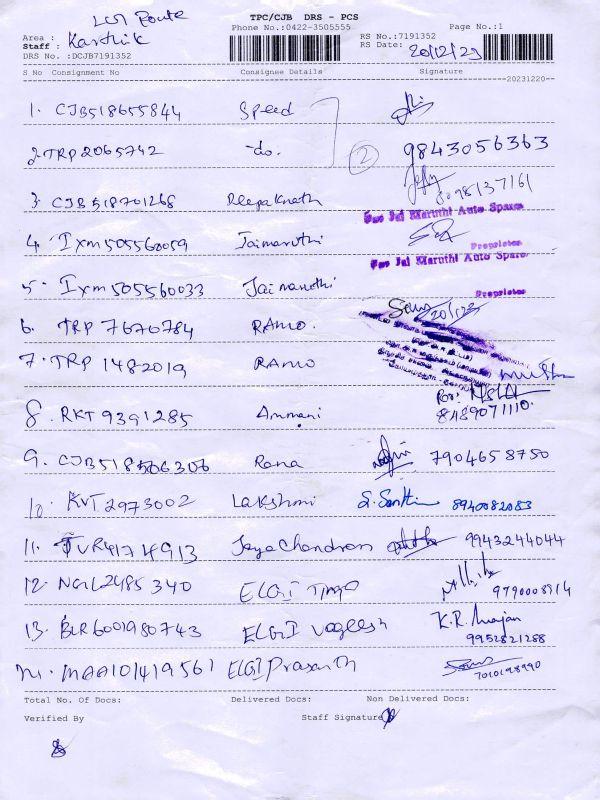 LGI Route
TPC/CJB DRS - PCS
Phone No.:0422-3505555 Page No.:1
Area :
Staff : Karthik
RS No.:7191352
RS Date: 20/12/23
DRS No. :DCJB7191352
S No Consignment No Consignee Details Signature
20231220
1. CJB518655844 Speed
2. TRP2065742 -do- 2 9843056363
3. CJB518701268 Deepaknath 8098137161
For Jai Maruthi Auto Spares
4. Ixm505560059 Jaimaruthi
Proprietor
For Jai Maruthi Auto Spares
5. Ixm505560033 Jaimaruthi
Proprietor
6. TRP 7676784 RAMO.
7. TRP 1482019 RAMO
8. RKT 9391285 Ammani 8489071110.
9. CJB518506306 Rana 7904658750
10. KVT2973002 Lakshmi 8940082083
11. TVR4174913 Jaya Chandran 9943244044
12. NGL2485340 ELGI 9790008914
13. BLR6001980743 ELGI Vageesh K.R. 9952821288
14. MAA101419561 ELGI Prasanth 7010198990
Total No. Of Docs: Delivered Docs: Non Delivered Docs:
Verified By Staff Signature